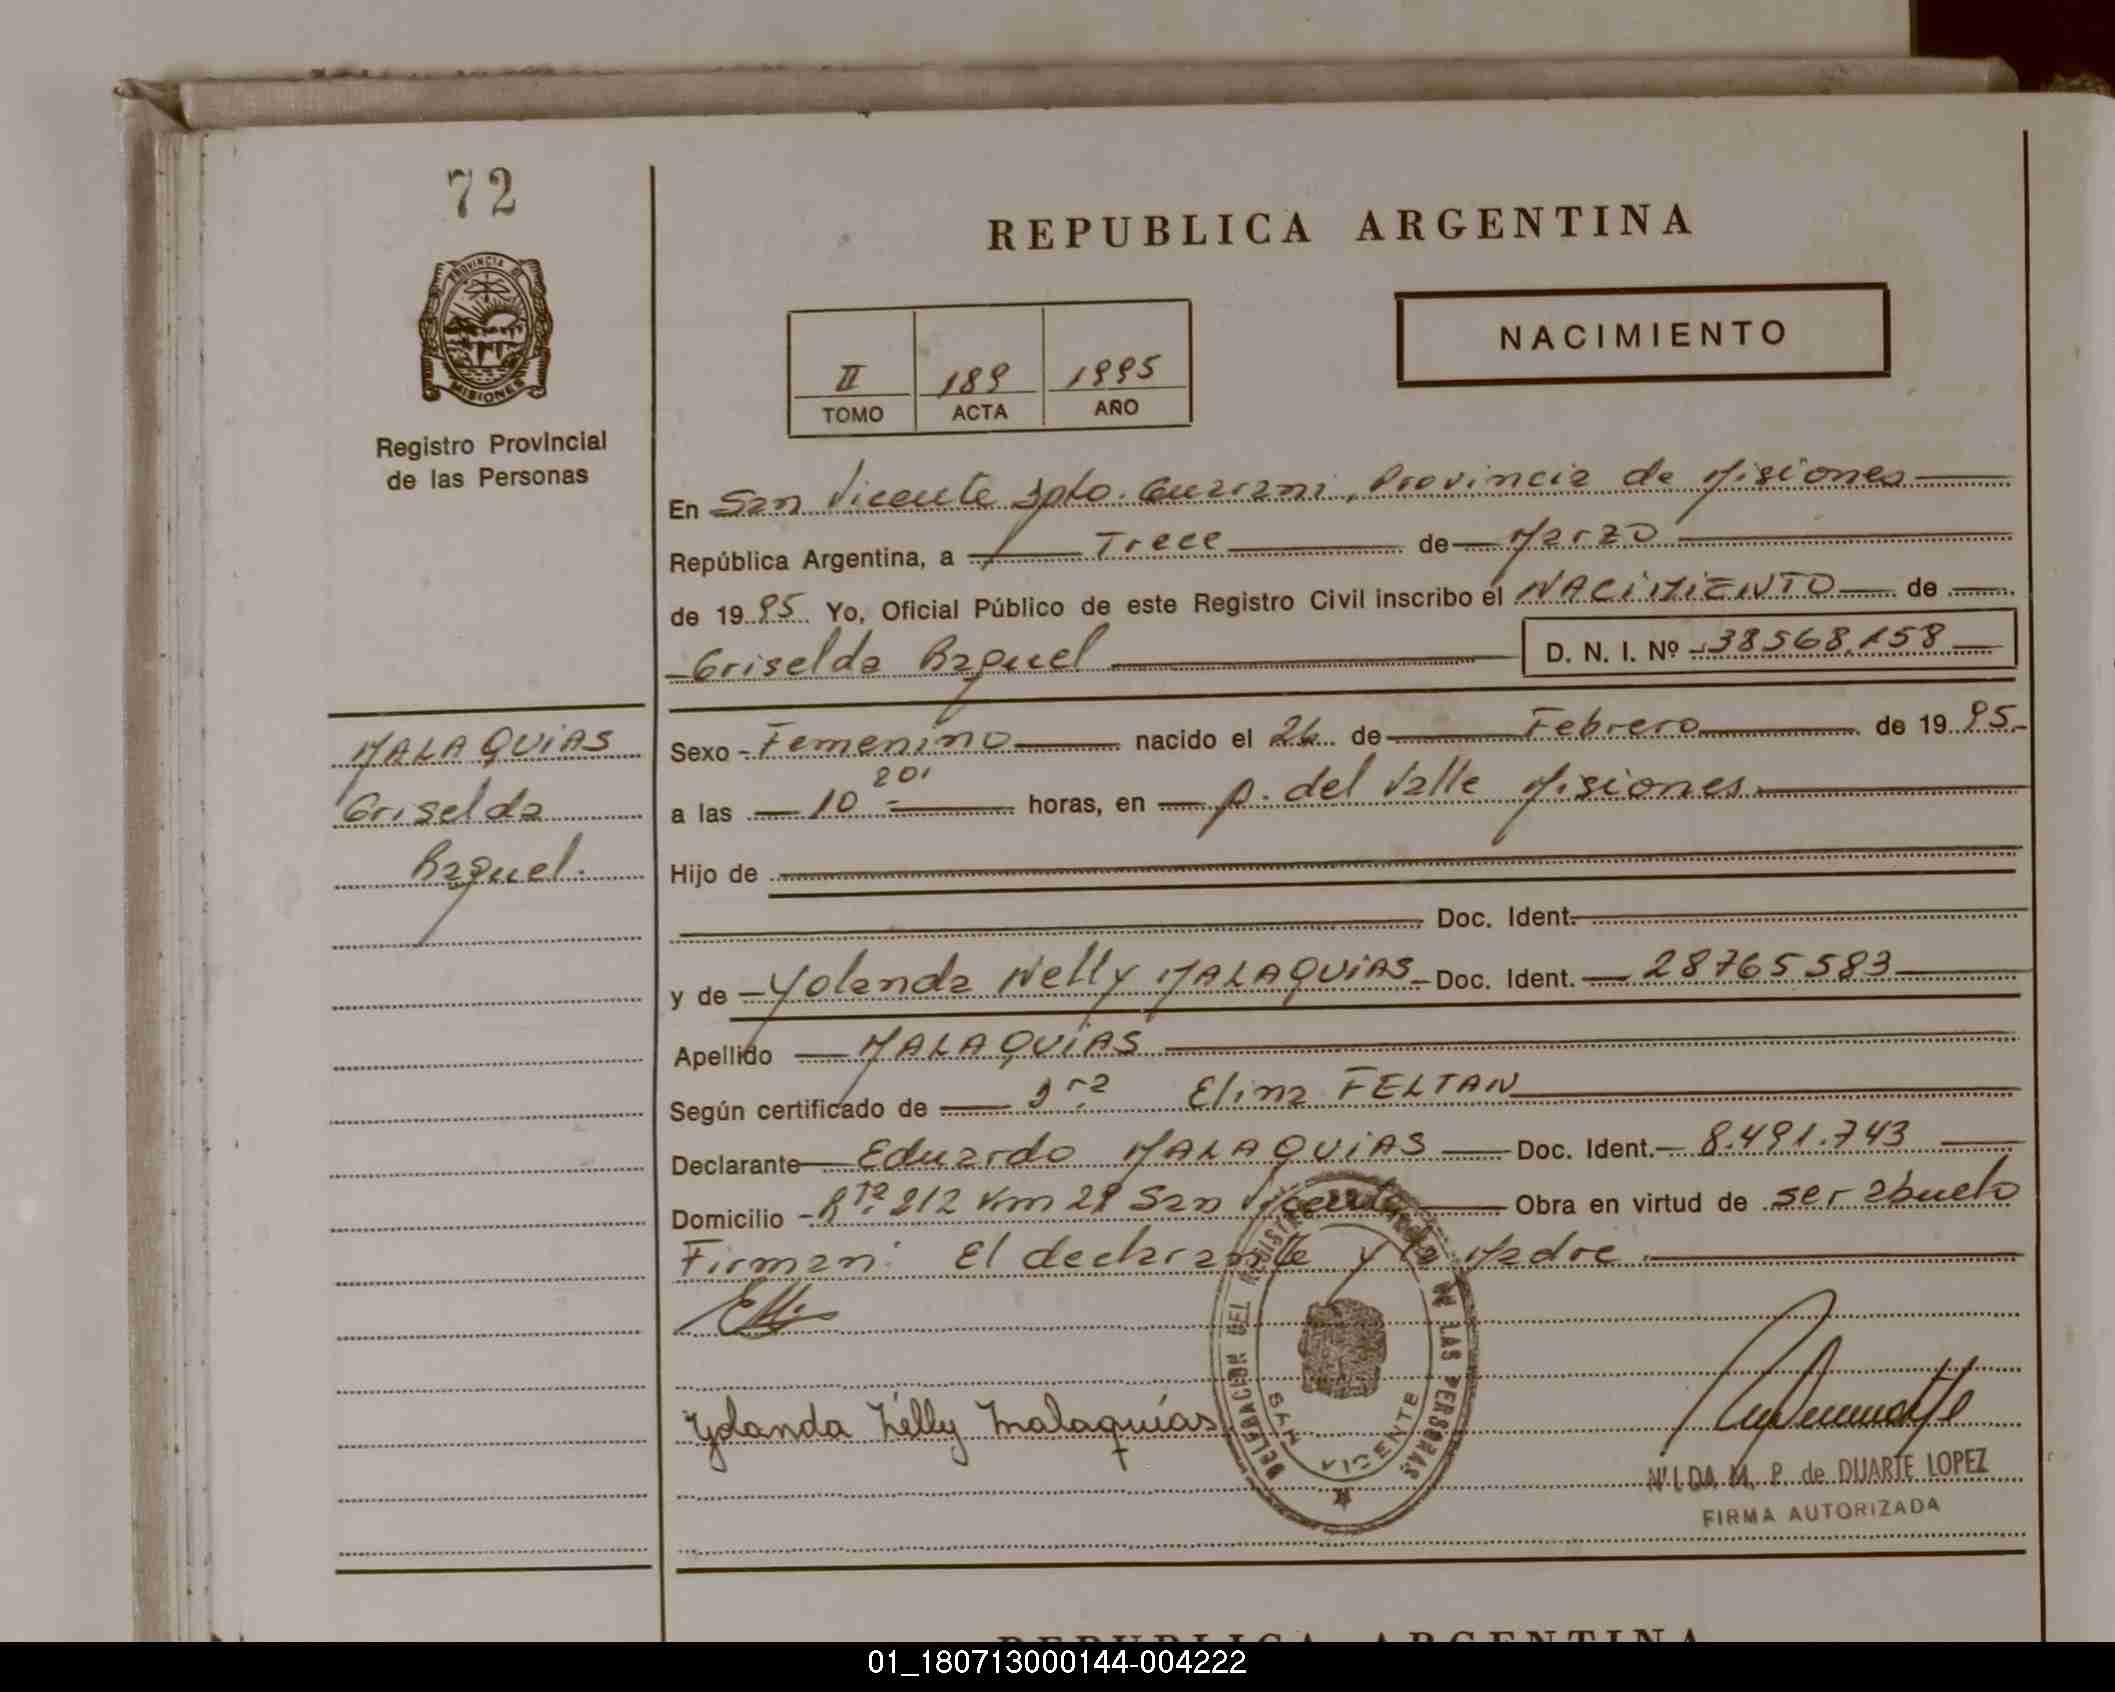 72
PROVINCIA DE
MISIONES
Registro Provincial
de las Personas
REPUBLICA ARGENTINA
NACIMIENTO
II 189 1995
TOMO ACTA AÑO
En San Vicente Dpto. Guarani, Provincia de Misiones
República Argentina, a Trece de Marzo
de 1995 Yo, Oficial Público de este Registro Civil inscribo el NACIMIENTO de
Griselda Raquel D. N. I. Nº 38568.158
MALAQUIAS
Griselda
Raquel.
Sexo Femenino nacido el 24 de Febrero de 1995
a las 10 20' horas, en p. del Valle Misiones
Hijo de
Doc. Ident.
y de Yolanda Nelly MALAQUIAS Doc. Ident. 28765583
Apellido MALAQUIAS
Según certificado de Dra Elina FELTAN
Declarante Eduardo MALAQUIAS Doc. Ident. 8.491.743
Domicilio Rta. 212 Km 29 San Vicente Obra en virtud de ser abuelo
Firman: El declarante y la Madre
Yolanda Nélly Malaquías
DELEGACION DEL REGISTRO DE LAS PERSONAS
SAN VICENTE
NILDA M. P. de DUARTE LOPEZ
FIRMA AUTORIZADA
REPUBLICA ARGENTINA
01_180713000144-004222